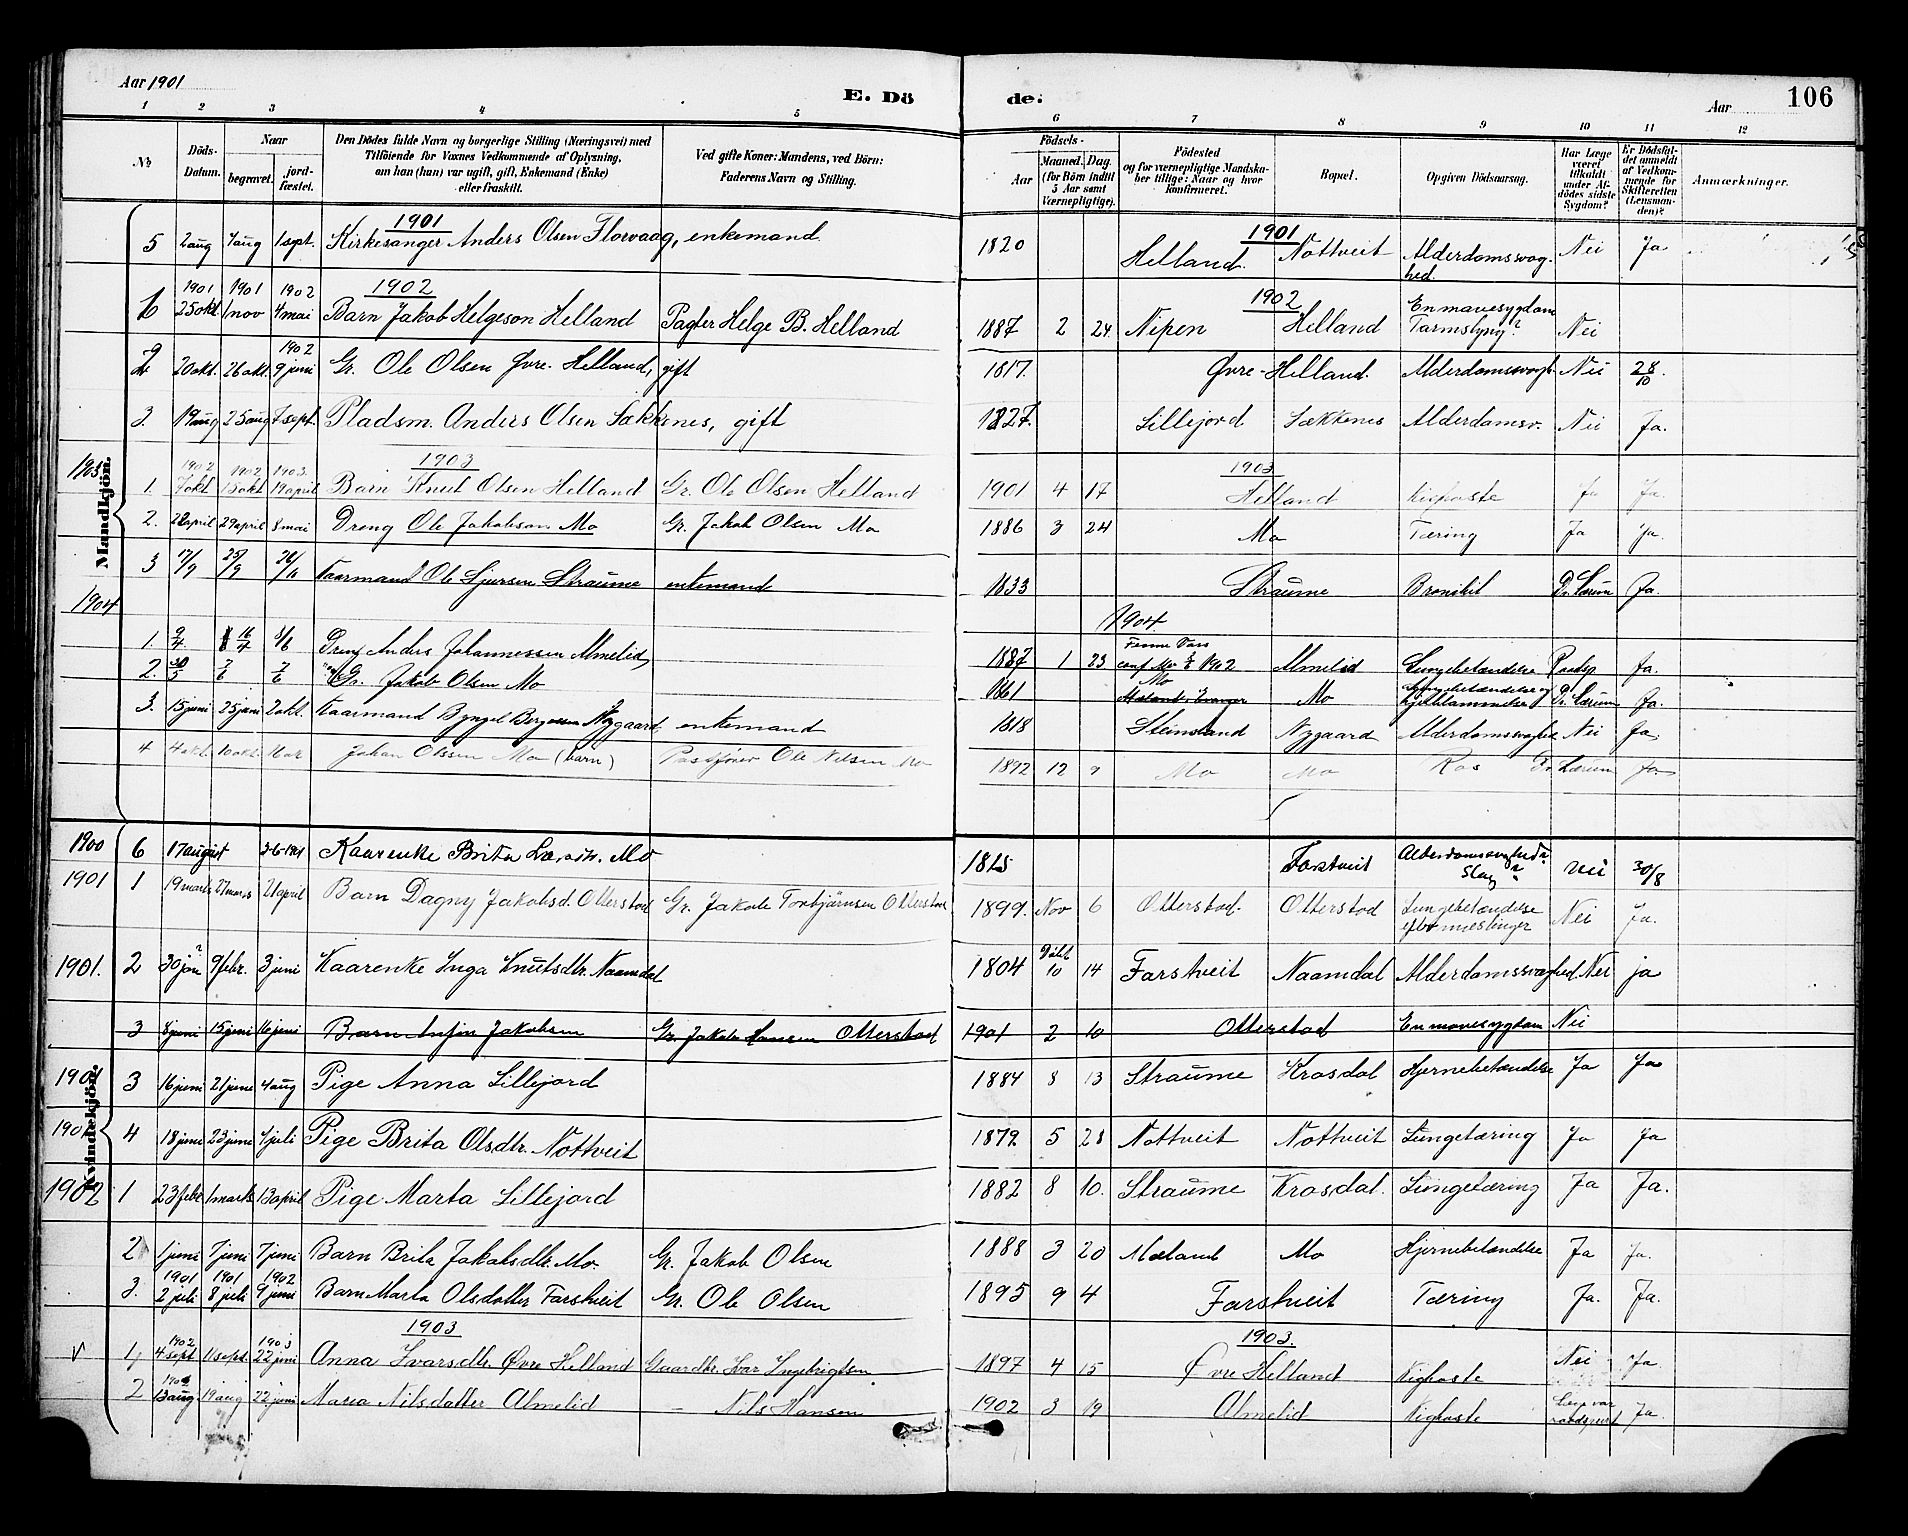 Aar 1901
E. Dö
de:
Aar
106
1 2 3 4 5 6 7 8 9 10 11 12
No
Döds-Datum.
Naar
begravet.
jord-fæstet.
Den Dödes fulde Navn og borgerlige Stilling (Næringsvei) med
Tilföiende for Voxnes Vedkommende af Oplysning,
om han (hun) var ugift, gift, Enkemand (Enke)
eller fraskilt.
Ved gifte Koner: Mandens, ved Börn:
Faderens Navn og Stilling.
Födsels-
Aar
Maaned. Dag.
(for Börn indtil
5 Aar samt
Værnepligtige).
Födested
og for værnepligtige Mandska-
ber tillige: Naar og hvor
konfirmeret.
Bopæl.
Opgiven Dödsaarsag.
Har Læge
været
tilkaldt
under Af-
dödes sidste
Sygdom?
Er Dödsfal-
det anmeldt
af Vedkom-
mende for
Skifteretten
(Lensman-
den)?
Anmærkninger.
Mandkjön.
1901 1901
5 2 aug 7 aug 1 sept. Kirkesanger Anders Olsen Florvaag, enkemand 1820 Helland. Nottveit Alderdomssvag-hed. Nei Ja
1902 1902
6 1901 25 okt 1901 1 nov 1902 4 mai Barn Jakob Helgeson Helland Pagter Helge B. Helland 1887 2 24 Nipen Helland En mavesygdom Tarmslyng? Nei
2 20 okt. 26 okt. 1902 9 juni Gr. Ole Olsen Øvre-Helland, gift 1817. Øvre-Helland. Alderdomssvagh Nei 28/10.
3. 19 aug 25 aug 7 sept. Pladsm. Anders Olsen Sækkenes, gift 1827. Lillejord Sækkenes Alderdomsv. Nei Ja.
1903 1903 1903
1. 1902 7 okt 1902 15 okt 1903 19 april Barn Knut Olsen Helland Gr. Ole Olsen Helland 1901 4 17 Helland Kighoste Ja Ja.
2. 22 april 29 april 8 mai Dreng Ole Jakobson Mo Gr. Jakob Olsen Mo 1886 3 24 Mo Tæring Ja Ja.
3 17/9 25/9 Kaarmand Ole Sjursen Straume enkemand 1833 Straume Bronkit Dr. Lærum Ja.
1904 1904.
1. 9/4 16/4 Dreng Anders Johannessen Almelid 1887 1 23 conf Mo 1902 Almelid Lungebetændelse Ja.
2. 30/5 Gr. Jakob Olsen Mo 1861 Mo Mo Lungebetændelse og Dr. Lærum Ja.
3. 15 juni 25 juni 2 okt. Kaarmand Nygaard, enkemand 1818 Steinsland Nygaard Alderdomssvaghed Nei Ja.
4 4 okt. 10 okt. Johan Olssen Mo (barn) Ole Nilsen Mo 1892 12 9 Mo Mo Dr. Lærum Ja.
Kvindekjön.
1900 6 17 august Kaarenke Brita Larsdtr. Mo 1815 Farstveit Alderdomssvaghed? Slag? Nei 30/8
1901 1 19 marts 27 marts 21 april Barn Dagny Jakobsd. Otterstad Gr. Jakob Torbjørnsen Otterstad 1899. Nov 6 Otterstad. Otterstad Lungebetændelse efter mæslinger Nei Ja.
1901. 2 30 jan? 9 febr. 3 juni Kaarenke Inga Knutsdtr. Naamdal 1804 Døbt 10 14 Farstveit Naamdal Alderdomssvaghed Nei ja
3 8 juni 15 juni 16 juni Barn Anfin Jakobsen Gr. Jakob Hansen Otterstad 1901 2 10 Otterstad En mavesygdom Nei
1901 3 16 juni 21 juni 4 aug Pige Anna Lillejord 1884 8 13 Straume Krosdal Hjernebetændelse Ja Ja
1901 4 18 juni 23 juni 7 juli Pige Brita Olsdtr. Nottveit 1879 5 28 Nottveit Nottveit Lungetæring Ja Ja
1902 1 23 febr 1 marts 13 april Pige Marta Lillejord 1882 8 10. Straume Krosdal. Lungetæring Ja Ja.
2 1 juni 7 juni 7 juni Barn Brita Jakobsdtr. Mo. Gr. Jakob Olsen 1888 3 20 Mæland Mo Hjernebetændelse Ja Ja.
3. 1901 2 juli 1901 8 juli 1902 9 juni Barn Marta Olsdatter Farstveit Gr. Ole Olsen 1895 9 4 Farstveit Tæring Ja. Ja.
1903 1903.
1, 1902 4 sept 11 sept. 1903 22 juni Anna Ivarsdtr. Øvre Helland Gaardbr. Ivar Ingebrigtsen 1897 4 15 Øvre Helland Kighoste Nei Ja.
2 13 aug. 19 aug 22 juni Maria Nilsdatter Almelid – Nils Hansen 1902 3 19 Almelid Kighoste Læge var raadspurt Ja.